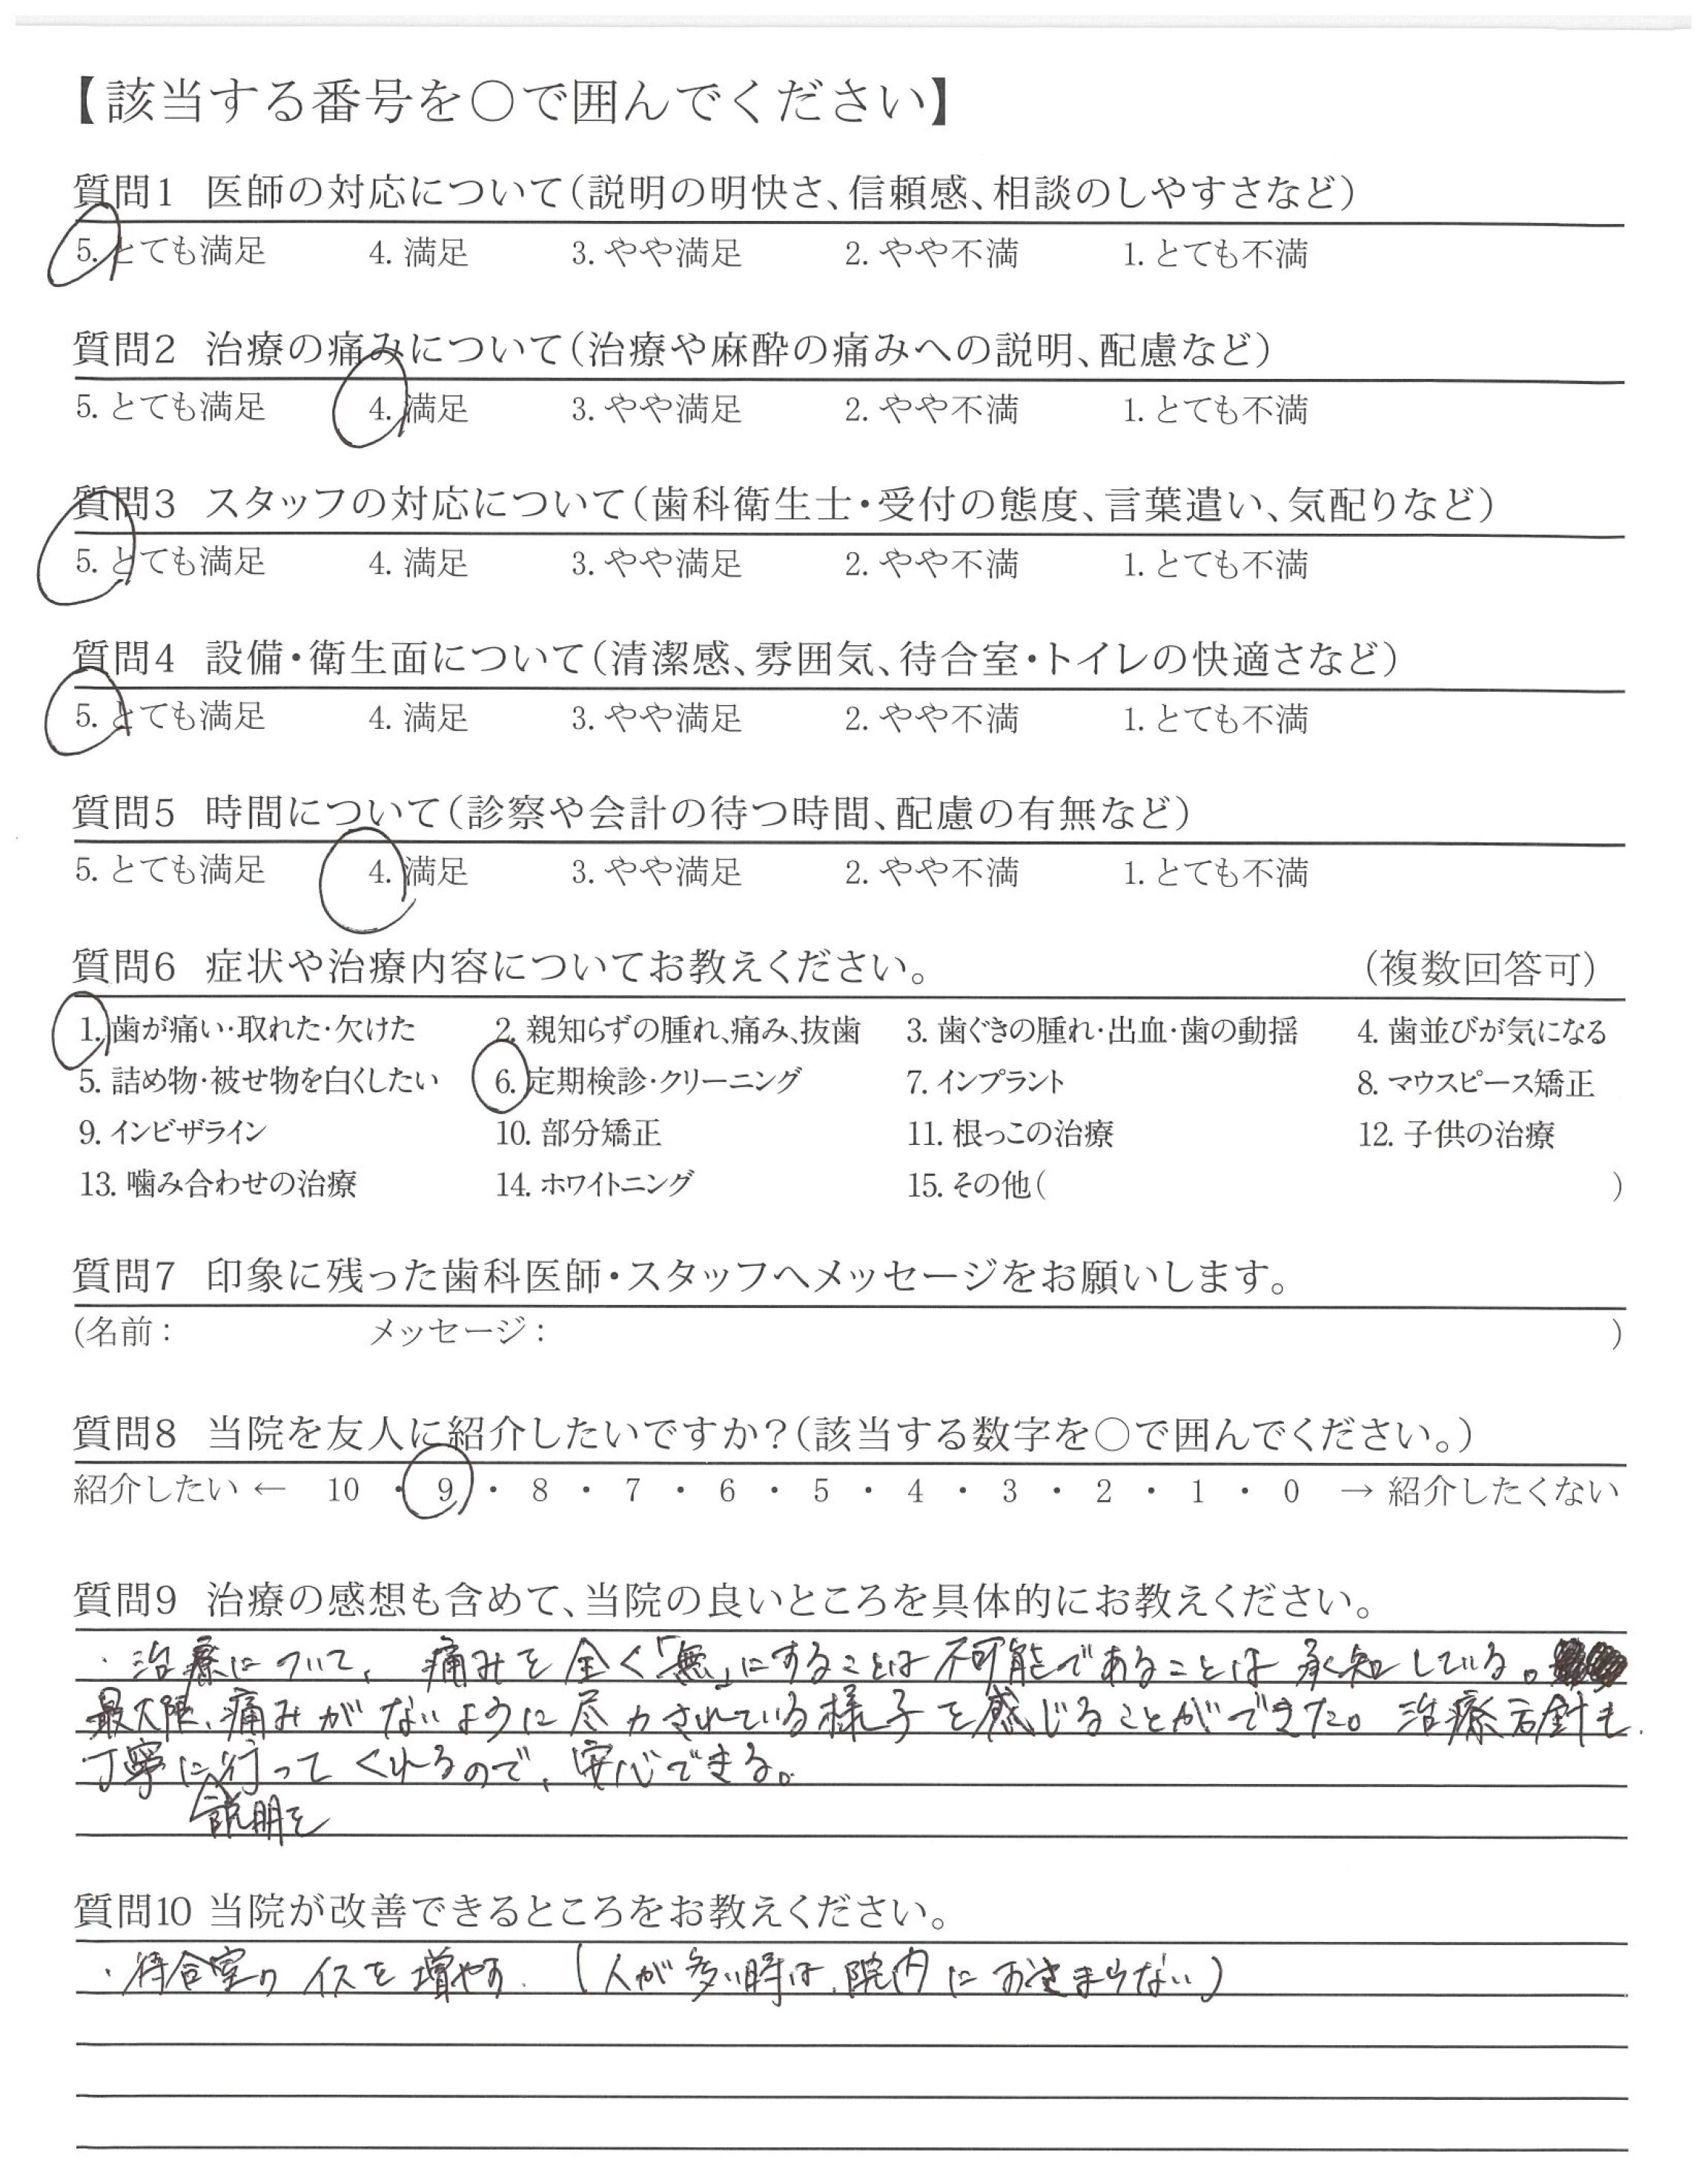 【該当する番号を○で囲んでください】
質問1 医師の対応について(説明の明快さ、信頼感、相談のしやすさなど)
5. とても満足 4. 満足 3. やや満足 2. やや不満 1. とても不満
質問2 治療の痛みについて(治療や麻酔の痛みへの説明、配慮など)
5. とても満足 4. 満足 3. やや満足 2. やや不満 1. とても不満
質問3 スタッフの対応について(歯科衛生士・受付の態度、言葉遣い、気配りなど)
5. とても満足 4. 満足 3. やや満足 2. やや不満 1. とても不満
質問4 設備・衛生面について(清潔感、雰囲気、待合室・トイレの快適さなど)
5. とても満足 4. 満足 3. やや満足 2. やや不満 1. とても不満
質問5 時間について(診察や会計の待つ時間、配慮の有無など)
5. とても満足 4. 満足 3. やや満足 2. やや不満 1. とても不満
質問6 症状や治療内容についてお教えください。 (複数回答可)
1. 歯が痛い・取れた・欠けた 2. 親知らずの腫れ、痛み、抜歯 3. 歯ぐきの腫れ・出血・歯の動揺 4. 歯並びが気になる
5. 詰め物・被せ物を白くしたい 6. 定期検診・クリーニング 7. インプラント 8. マウスピース矯正
9. インビザライン 10. 部分矯正 11. 根っこの治療 12. 子供の治療
13. 噛み合わせの治療 14. ホワイトニング 15. その他( )
質問7 印象に残った歯科医師・スタッフへメッセージをお願いします。
(名前: メッセージ: )
質問8 当院を友人に紹介したいですか?(該当する数字を○で囲んでください。)
紹介したい ← 10 ・ 9 ・ 8 ・ 7 ・ 6 ・ 5 ・ 4 ・ 3 ・ 2 ・ 1 ・ 0 → 紹介したくない
質問9 治療の感想も含めて、当院の良いところを具体的にお教えください。
・治療について、痛みを全く「無」にすることは不可能であることは承知している。
最大限、痛みがないように尽力されている様子を感じることができた。治療方針も
丁寧に行ってくれるので、安心できる。
説明を
質問10 当院が改善できるところをお教えください。
・待合室のイスを増やす. (人が多い時は、院内におさまらない)